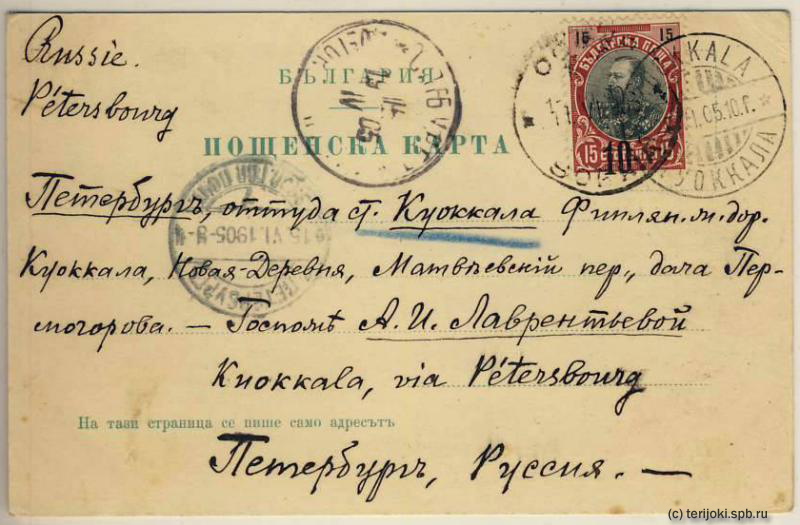 Russie.
Pétersbourg
БЪЛГАРИЯ
ПОЩЕНСКА КАРТА
15 15
БЪЛГАРСКА ПОЩА
15 10
KUOKKALA
КУОККАЛА
VI.05.10.Г.
15.VI.1905
Петербургъ, оттуда ст. Куоккала Финлян. ж. дор.
Куоккала, Новая-Деревня, Матвѣевскій пер., дача Пер-
могорова. — Госпожѣ А. И. Лаврентьевой
Kuokkala, via Pétersbourg
На тази страница се пише само адресътъ
Петербургъ, Руссия. —
(c) terijoki.spb.ru